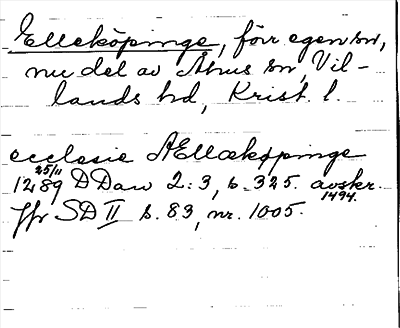 Elleköpinge, förr egen sn,
nu del av Åhus sn, Vil-
lands hd, Krist. l.
ecclesie Ællækøpinge
25/11
1289 DDan 2:3, s. 325. avskr.
1494.
Jfr SD II s. 83, nr. 1005.